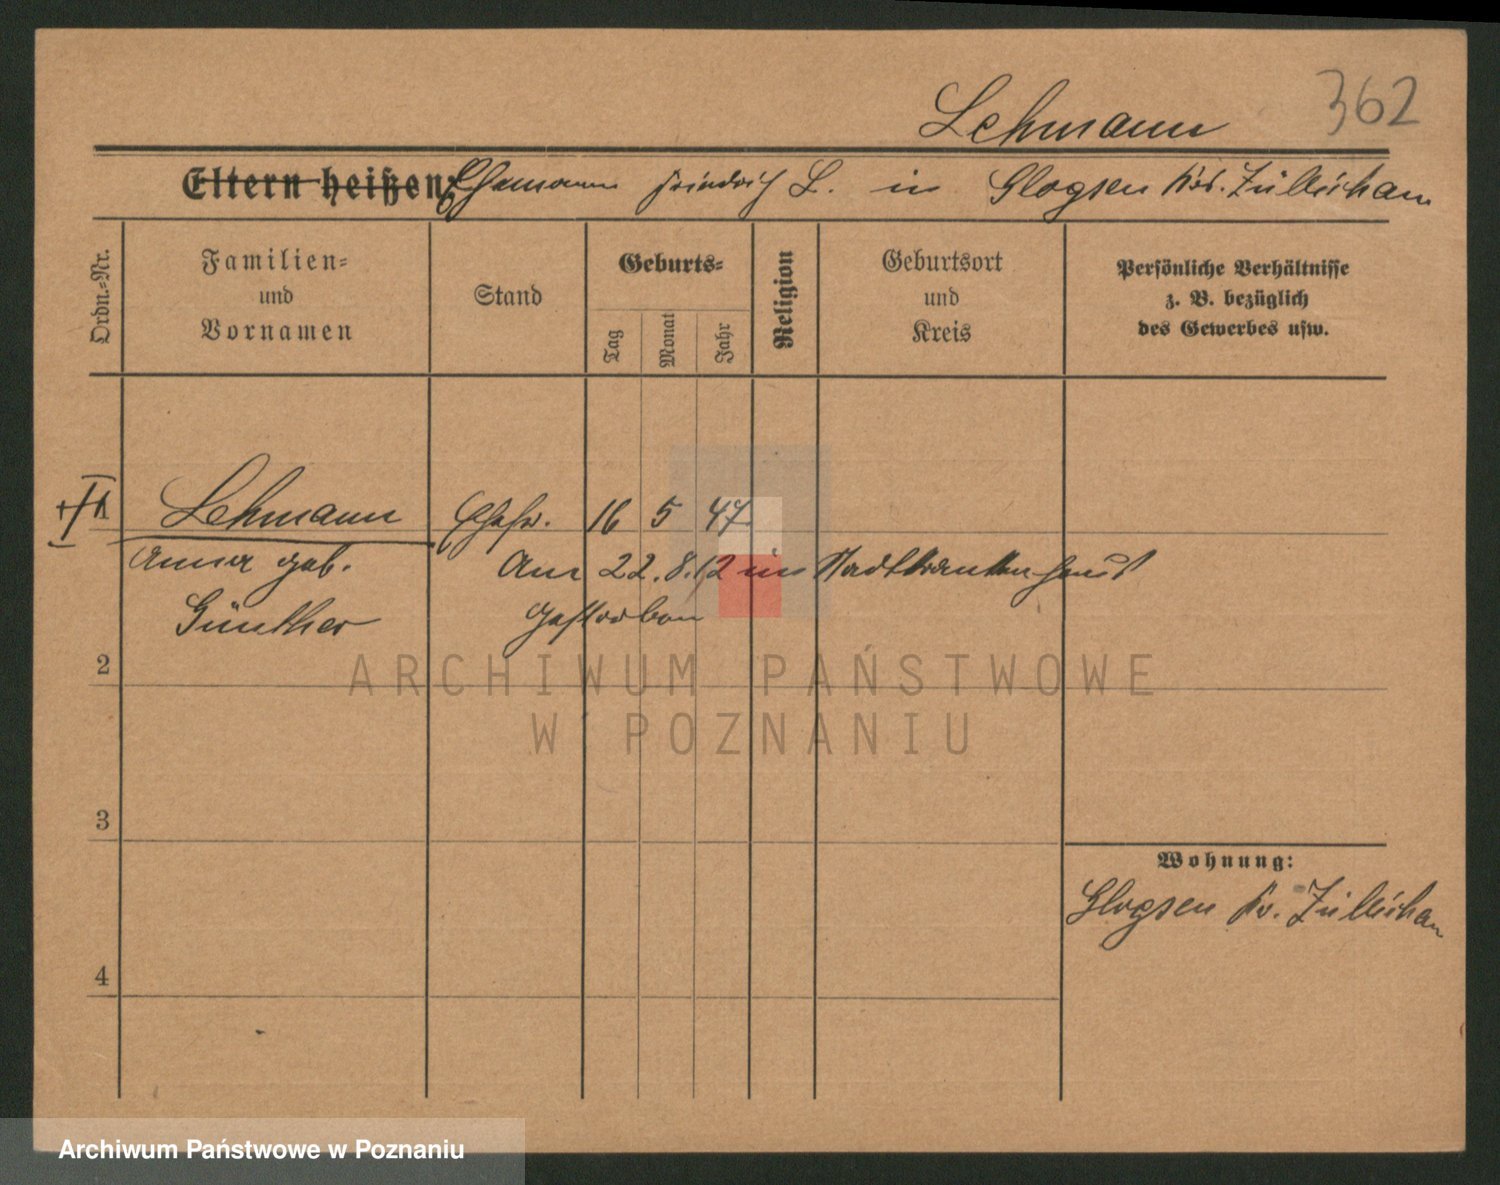 Lehmann 362
Eltern heißen Ehemann Friedrich L. in Glogsen Krs. Züllichau
Ordn.-Nr.
Familien-
und
Vornamen
Stand
Geburts-
Tag
Monat
Jahr
Religion
Geburtsort
und
Kreis
Persönliche Verhältnisse
z. B. bezüglich
des Gewerbes usw.
1 Lehmann Ehefr. 16 5 47
Anna geb. Am 22.8.12 im Stadtkrankenhaus
Günther gestorben
2
3
4
Wohnung:
Glogsen Kr. Züllichau
ARCHIWUM PAŃSTWOWE
W POZNANIU
Archiwum Państwowe w Poznaniu